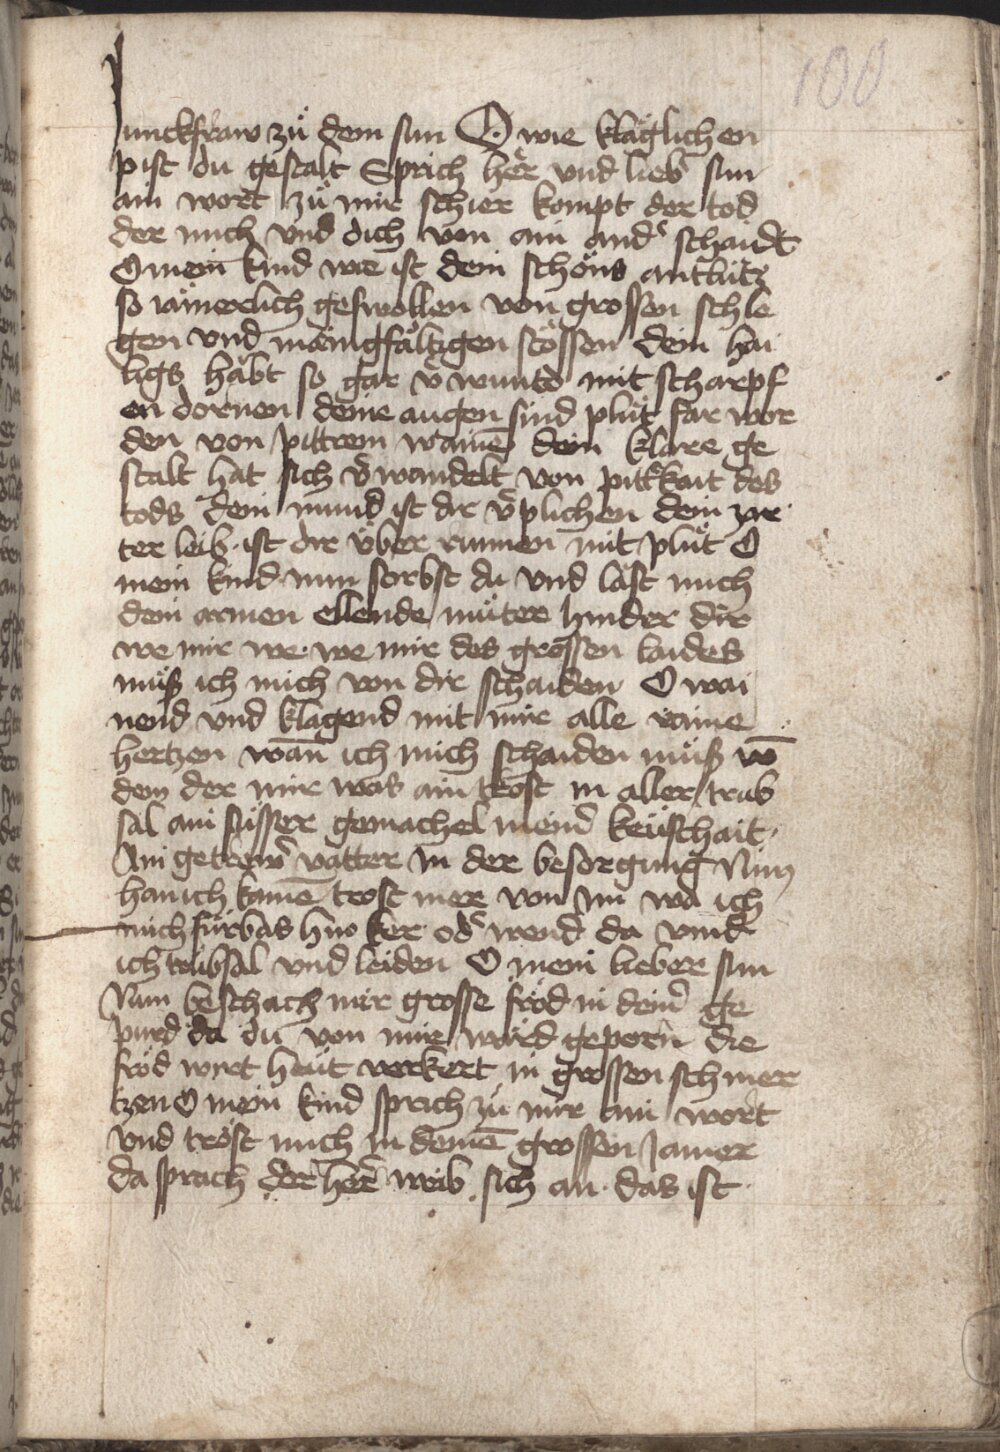 100
Junckfraw zů dem sun O wie kläglichen
pist du gestalt Sprich her vnd lieb sun
ain wort zů mir schier kompt der tod
der mich vnd dich von ain and̾ schaidt
O mein kind wie ist dein schöns antlütz
so iämerlich geswollen von grossen schle
gen vnd mänigfältigen stössen dein hai
ligs häbt so gar v̾wunto mit scharpf
en dornen deine augen sind plůt far wor
den von pittrem wainē dein klare ge
stalt hat sich v̾wandelt von pitt̾kait des
tods dein mund ist dir v̾plichen dein zar
ter leib ist dir über runnen mit plůt O
mein kind nun stirbst du vnd läst mich
dein armen ellende můter hinder dir
we mir we we mir des grossen laides
můß ich mich von dir schaiden O wai
nend vnd klagend mit mir alle raine
hertzen wān ich mich schaiden můß vō
dem der mir was ain trost in aller trüb
sal ain süsser gemachel mein̾ keüschait
Ain getrew̾ vatter in der besorgung Nun
han ich kainē trost mer von im wa ich
mich fürbas hin ker od̾ wend da vind
ich trübsal vnd leiden O mein lieber sun
Nun beschach mir grosse fröd in dein̾ ge
purd da du von mir ward geporn die
fröd wirt heüt verkert in grossen schmer
tzen O mein kind sprich zů mir ain wort
vnd tröst mich in deinē grossen Jamer
da sprach der her̾ weib sich an das ist